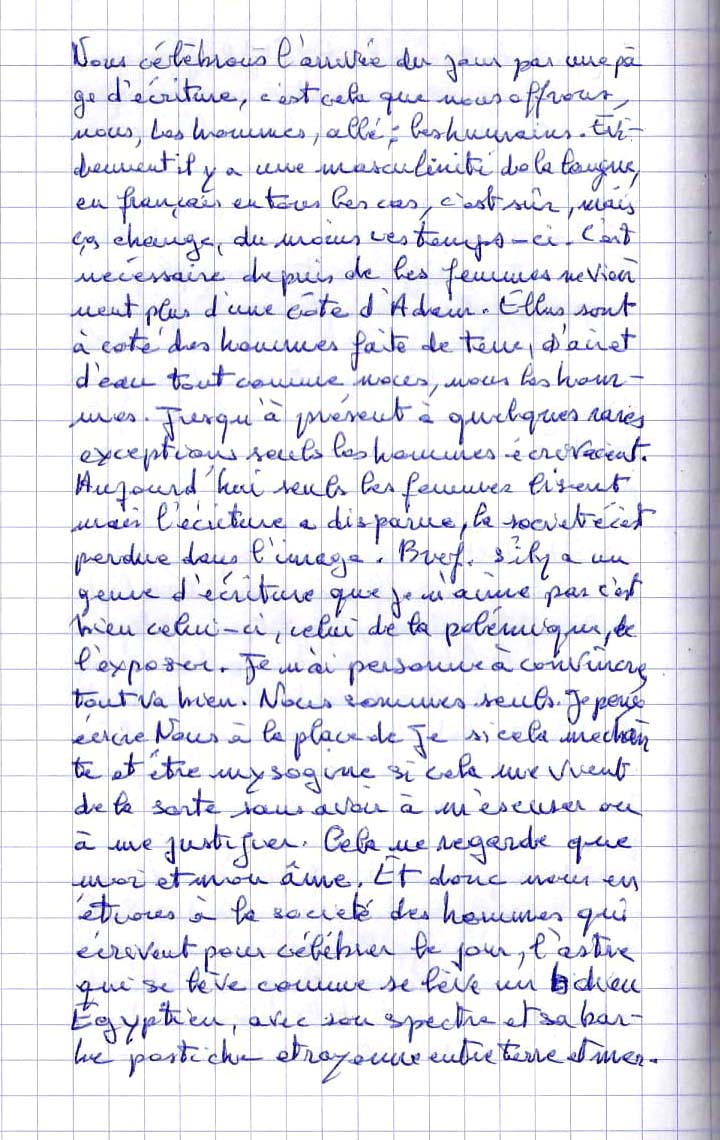 Nous célèbrons l'arrivée du jour par une pa
ge d'écriture, c'est cela que nous offrons,
nous, les hommes, allé; les humains. Evi-
demment il y a une masculinité de la langue,
en français en tous les cas, c'est sûr, mais
ça change, du moins ces temps-ci. C'est
nécessaire depuis de les femmes ne vien
nent plus d'une côte d'Adam. Elles sont
à coté des hommes faite de terre, d'air et
d'eau tout comme nous, nous les hom-
mes. Jusqu'à présent à quelques rares
exceptions seuls les hommes écrivaient.
Aujourd'hui seuls les femmes lisent
mais l'écriture a disparue, la societé est
perdue dans l'image. Bref. s'il y a un
genre d'écriture que je n'aime pas c'est
bien celui-ci, celui de la polémique, de
l'exposer. Je n'ai personne à convaincre,
tout va bien. Nous sommes seuls. Je peux
écrire Nous à la place de Je si cela me chan
te et être mysogine si cela me vient
de la sorte sans avoir à m'escuser ou
à me justifier. Cela ne regarde que
moi et mon âme. Et donc nous en
étions à la societé des hommes qui
écrivent pour célébrer le jour, l'astre
qui se lève comme se lève un dieu
Egyptien, avec son spectre et sa bar-
be postiche et rayonne entre terre et mer.